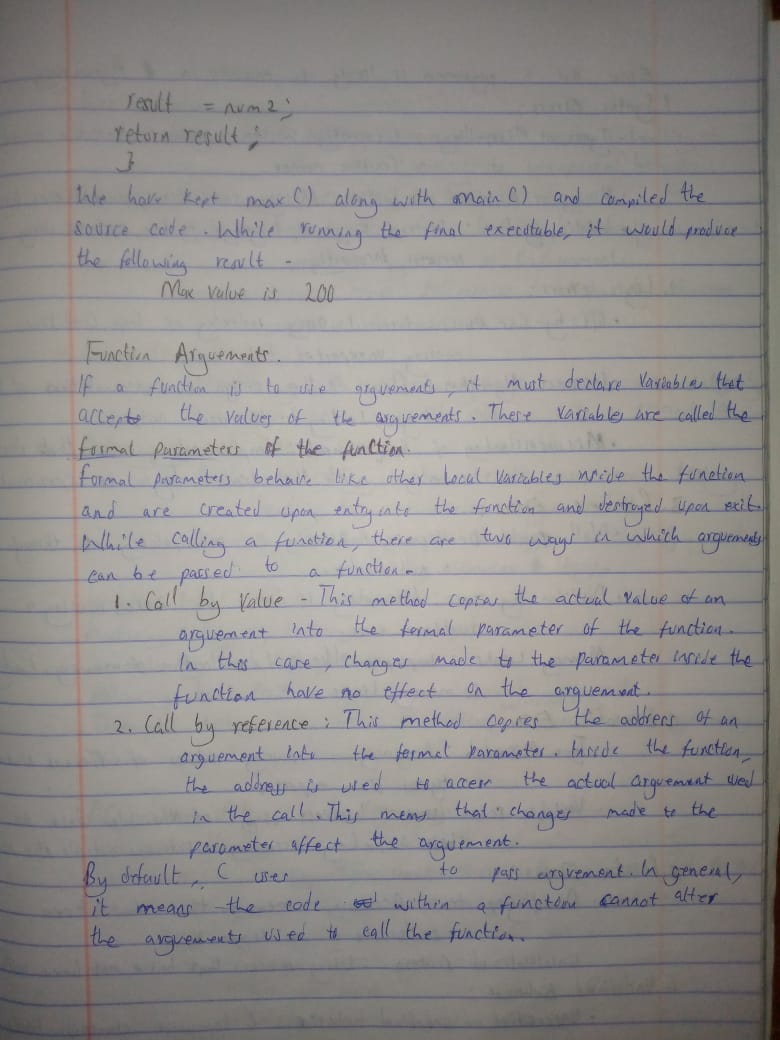 result = num2;
return result;
}
We have kept max () along with main () and compiled the
source code. While running the final executable, it would produce
the following result -
Max value is 200
Function Arguements.
If a function is to use arguements, it must declare Variables that
accepts the values of the arguements. These Variables are called the
formal parameters of the function.
formal parameters behave like other Local Variables inside the function
and are created upon entry into the function and destroyed upon exit.
While calling a function, there are two ways in which arguements
can be passed to a function -
1. Call by Value - This method copies the actual value of an
arguement into the formal parameter of the function.
In this case, changes made to the parameter inside the
function have no effect on the arguement.
2. Call by reference : This method copies the address of an
arguement into the formal parameter. Inside the function,
the address is used to access the actual arguement used
in the call. This means that changes made to the
parameter affect the arguement.
By default, C uses to pass arguement. In general,
it means the code within a function cannot alter
the arguements used to call the function.